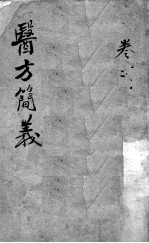 醫方簡義
卷二